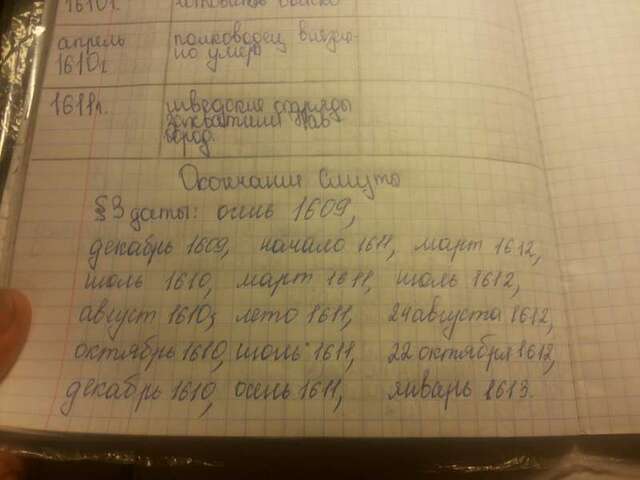 1610г.
апрель
1610г
полководец внезап-
но умер
1611г.
шведские отряды
захватили Нов
город.
Окончание Смуты
§3 даты: осень 1609,
декабрь 1609, начало 1611, март 1612,
июль 1610, март 1611, июль 1612,
август 1610, лето 1611, 24 августа 1612,
октябрь 1610, июль 1611, 22 октября 1612,
декабрь 1610, осень 1611, январь 1613.